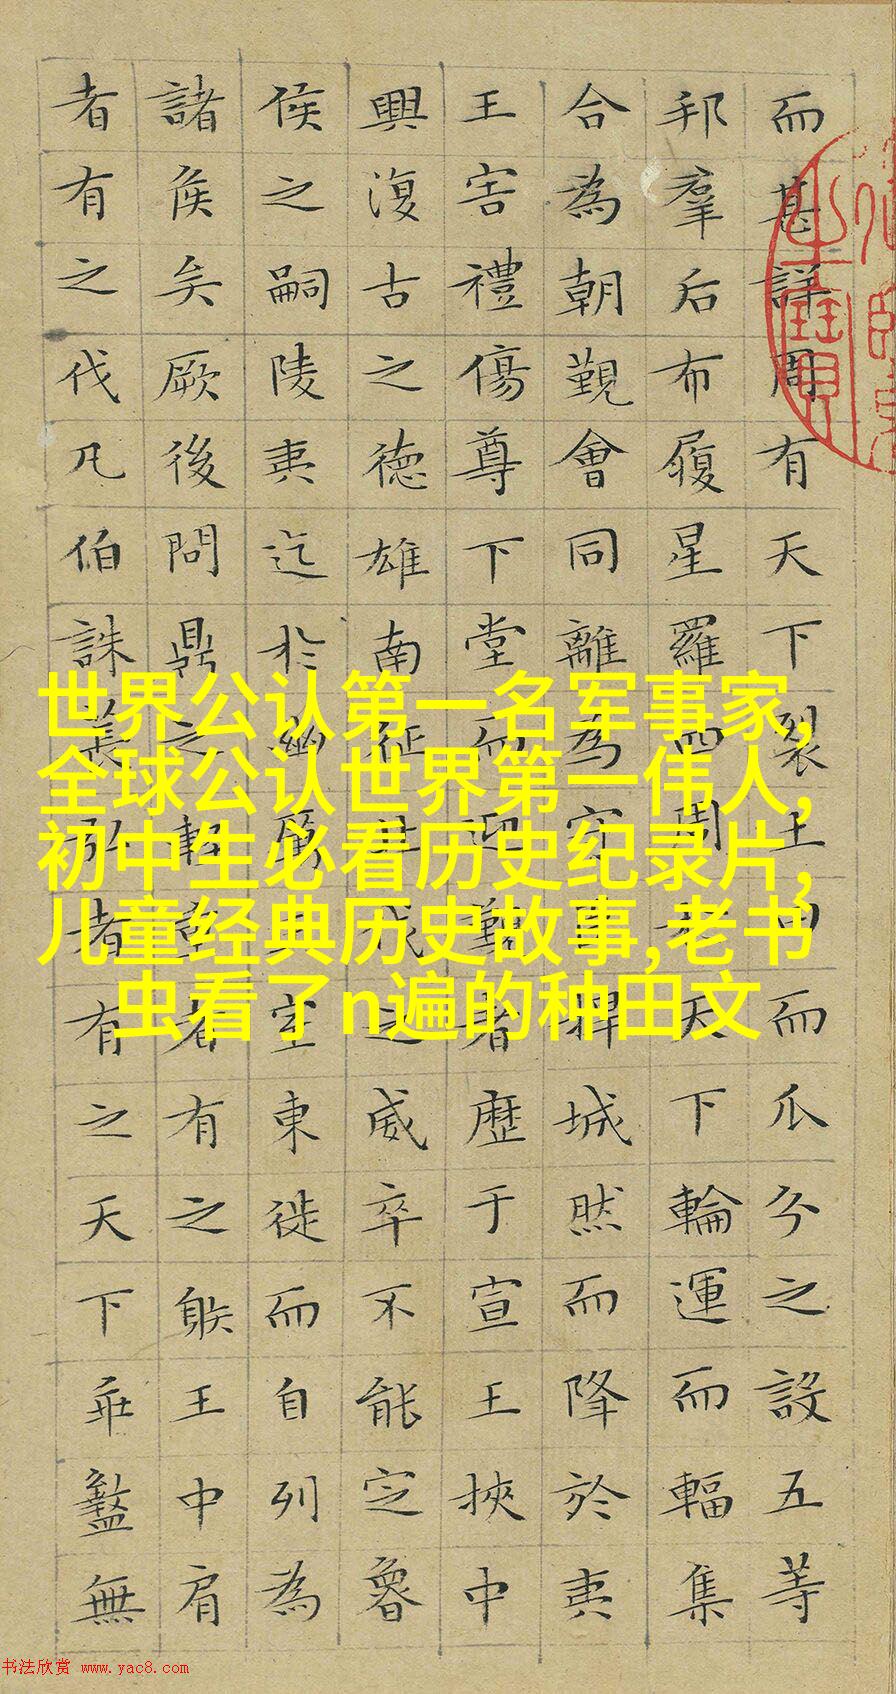 而甚詳周有天下裂土田而瓜分之設五等
邦羣后布履星羅四周天下輪運而輻集
合為朝覲會同離為守臣捍城然而降於夷
王害禮傷尊下堂而迎覲者歷于宣王挾中
興復古之德雄南征北伐之威卒不能定魯
侯之嗣陵夷迄於幽厲王室東徙而自列為
諸侯矣厥後問鼎之輕重者有之䠶王中肩
者有之伐凡伯誅萇弘者有之天下乖盭無
世界公认第一名军事家,
全球公认世界第一伟人,
初中生必看历史纪录片,
儿童经典历史故事,老书
虫看了n遍的种田文
书法欣赏 www.yac8.com